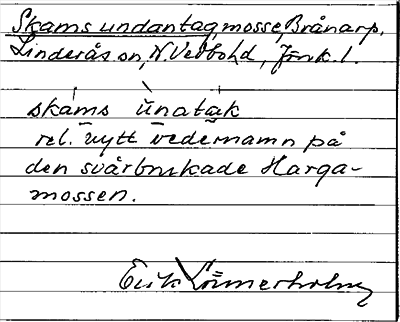 Skams undantag, mosse, Brånarp,
Linderås sn, N. Vedbo hd, Jönk. l.
skams ūnatak
rel. nytt vedernamn på
den svårbrukade Harga-
mossen.
Erik Lönnerholm